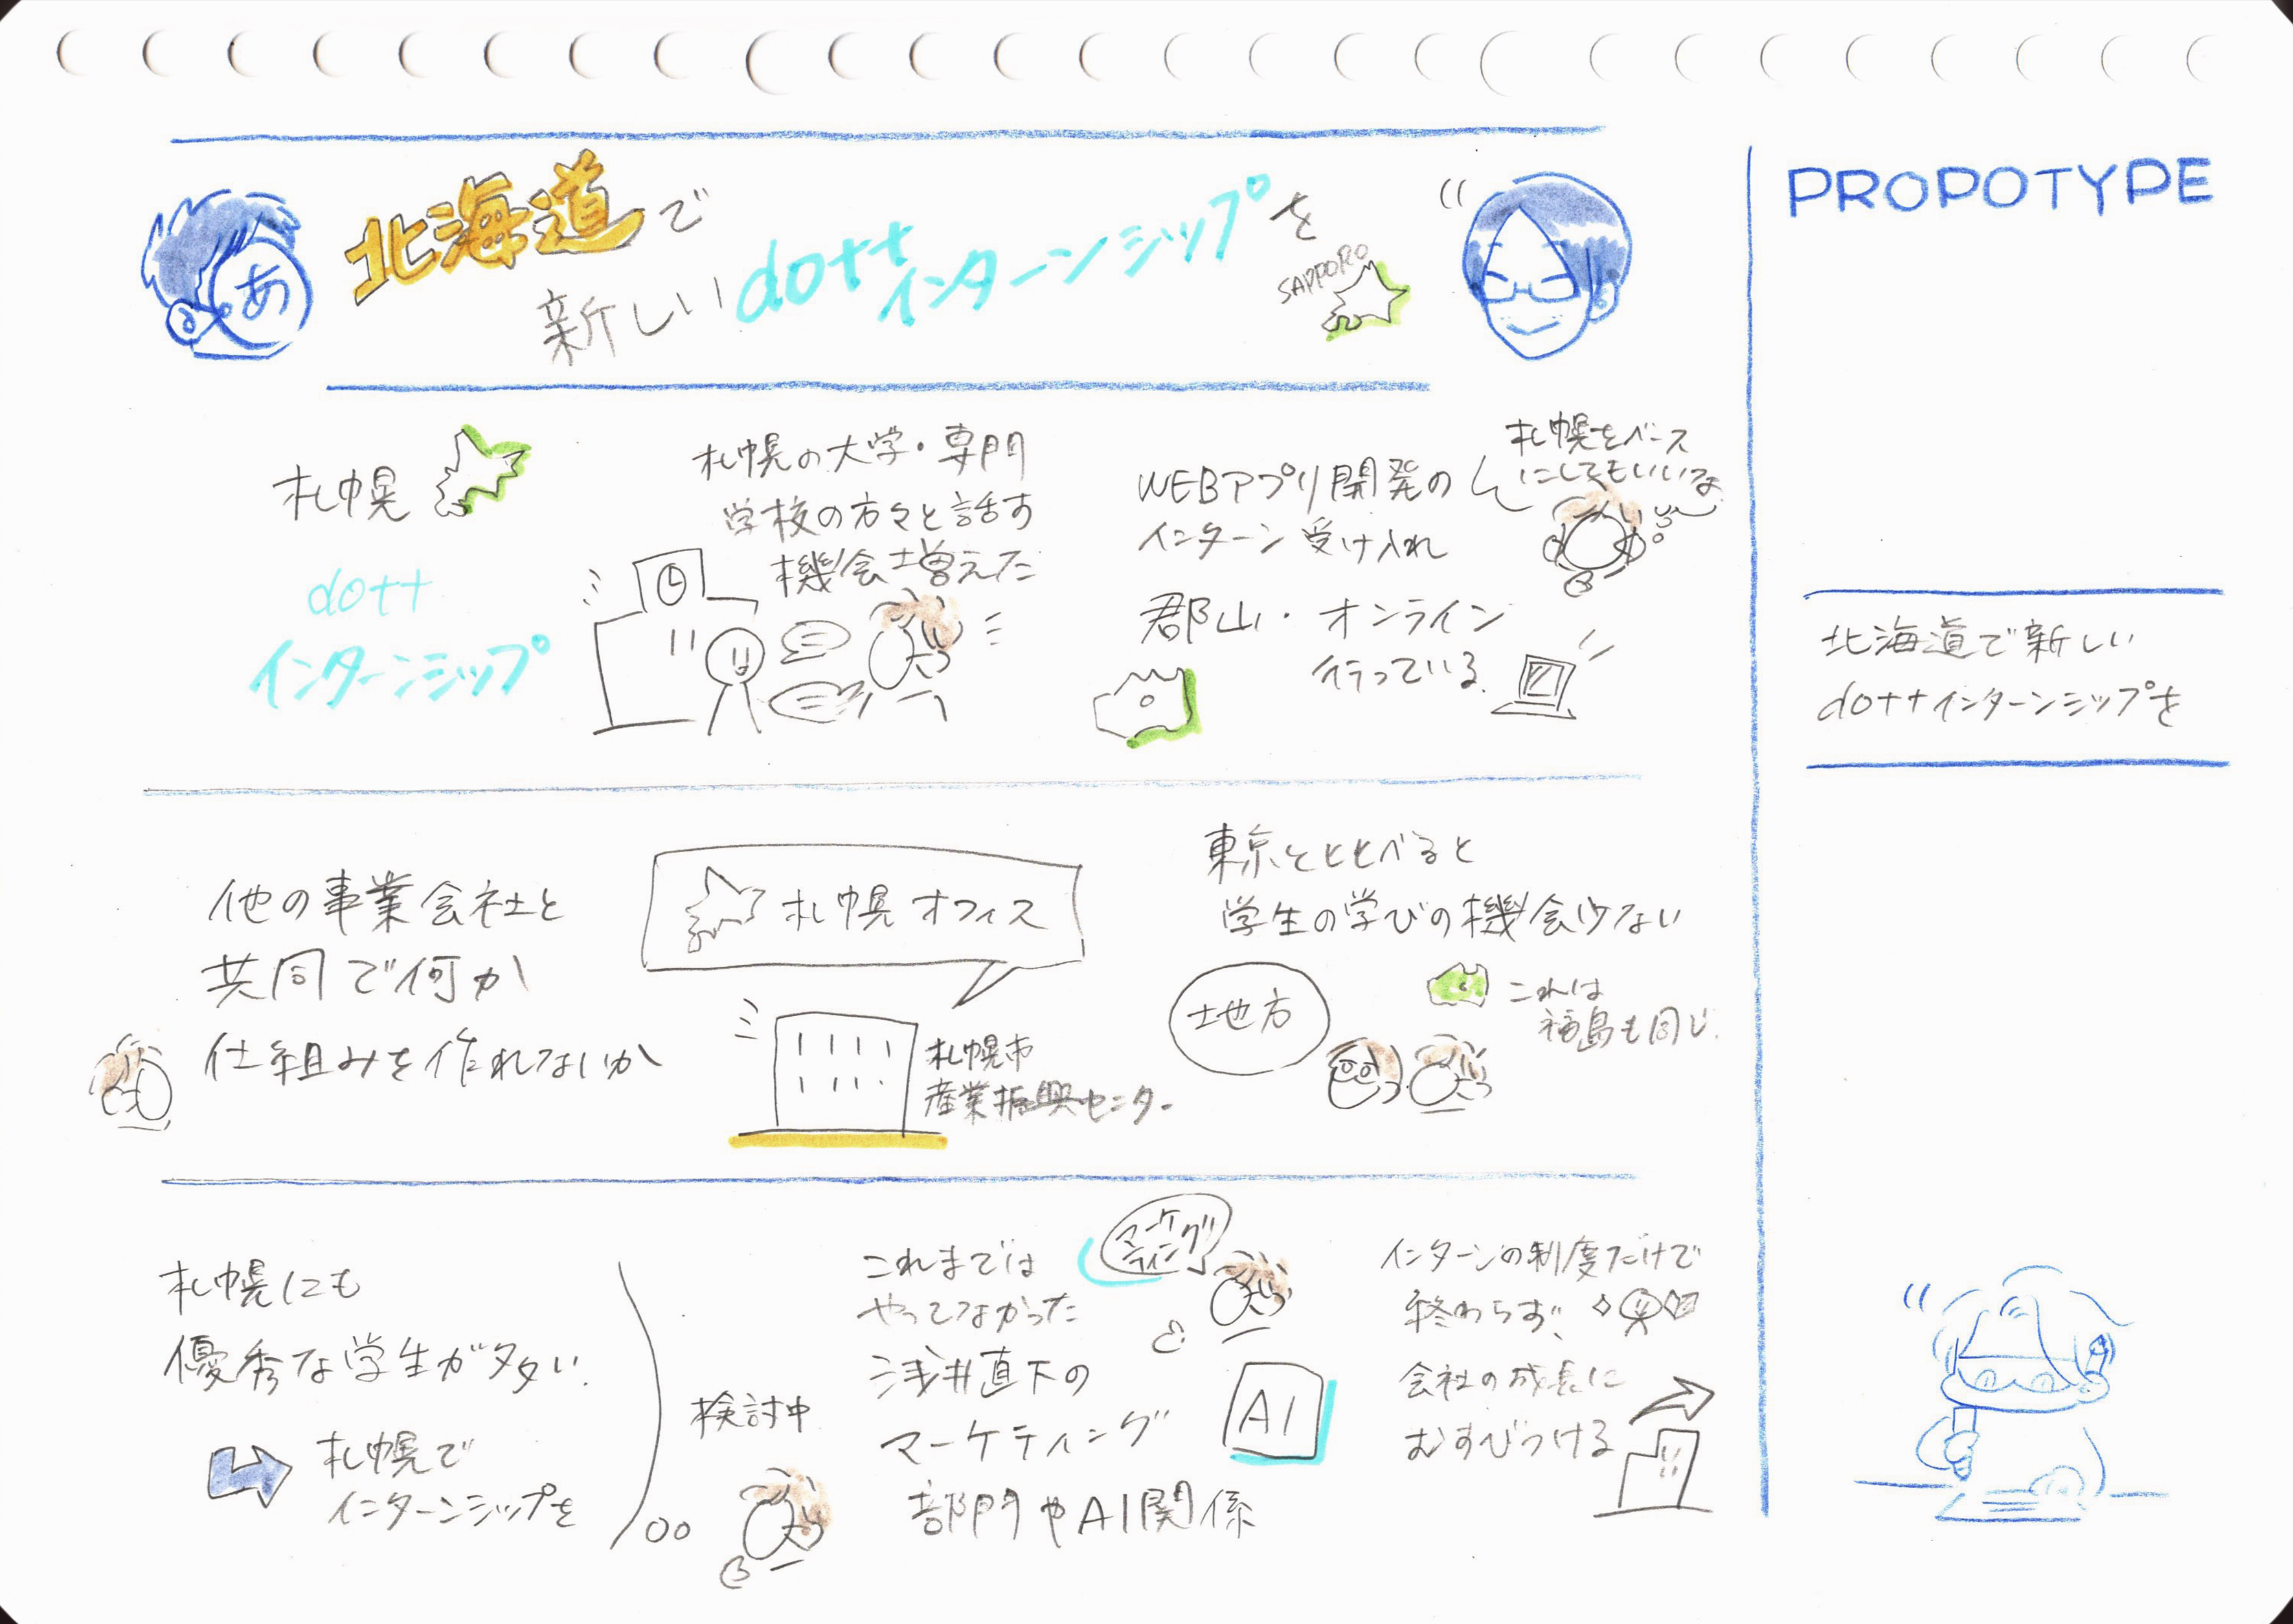 北海道で
新しいdottインターンシップを
SAPPORO
あ
PROPOTYPE
札幌
dott
インターンシップ
札幌の大学・専門
学校の方々と話す
機会増えた
WEBアプリ開発の
インターン受け入れ
郡山・オンライン
行っている
札幌をベース
にしてもいいな
北海道で新しい
dottインターンシップを
他の事業会社と
共同で何か
仕組みを作れないか
札幌オフィス
札幌市
産業振興センター
東京とくらべると
学生の学びの機会少ない
地方
これは
福島も同じ.
札幌にも
優秀な学生が多い.
札幌で
インターンシップを
検討中
これまでは
やってなかった
浅井直下の
マーケティング
部門やAI関係
マーケ
ティング
AI
インターンの制度だけで
終わらず、
会社の成長に
むすびつける